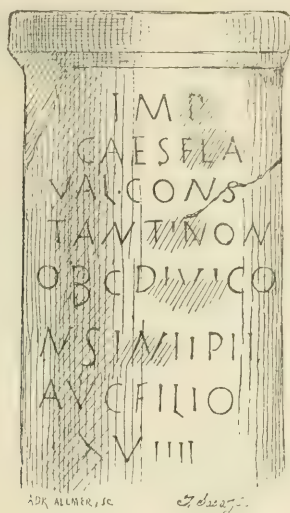 IMP
CAESFLA
VAL·CONS
TANTINON
OBCDIVICO
NSINIIPII
AVCFILIO
XVIIII
ADR ALLMER, SC